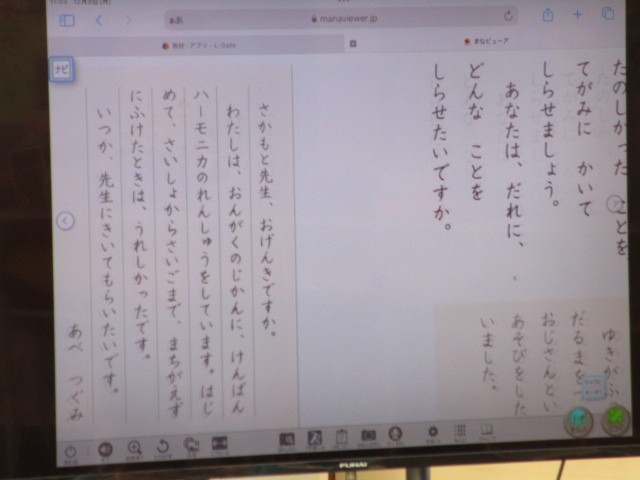 12月3日(月)
ぁあ
manaviewer.jp
教材・アプリ - L-Gate
まなビューア
ナビ
たのしかった ことを
てがみに かいて
しらせましょう。
あなたは、だれに、
どんな ことを
しらせたいですか。
ゆきが
だるまを
おじさんとい
あそびをした
いました。
さかもと先生、おげんきですか。
わたしは、おんがくのじかんに、けんばん
ハーモニカのれんしゅうをしています。はじ
めて、さいしょからさいごまで、まちがえず
にふけたときは、うれしかったです。
いつか、先生にきいてもらいたいです。
あべ つぐみ
FUNAI